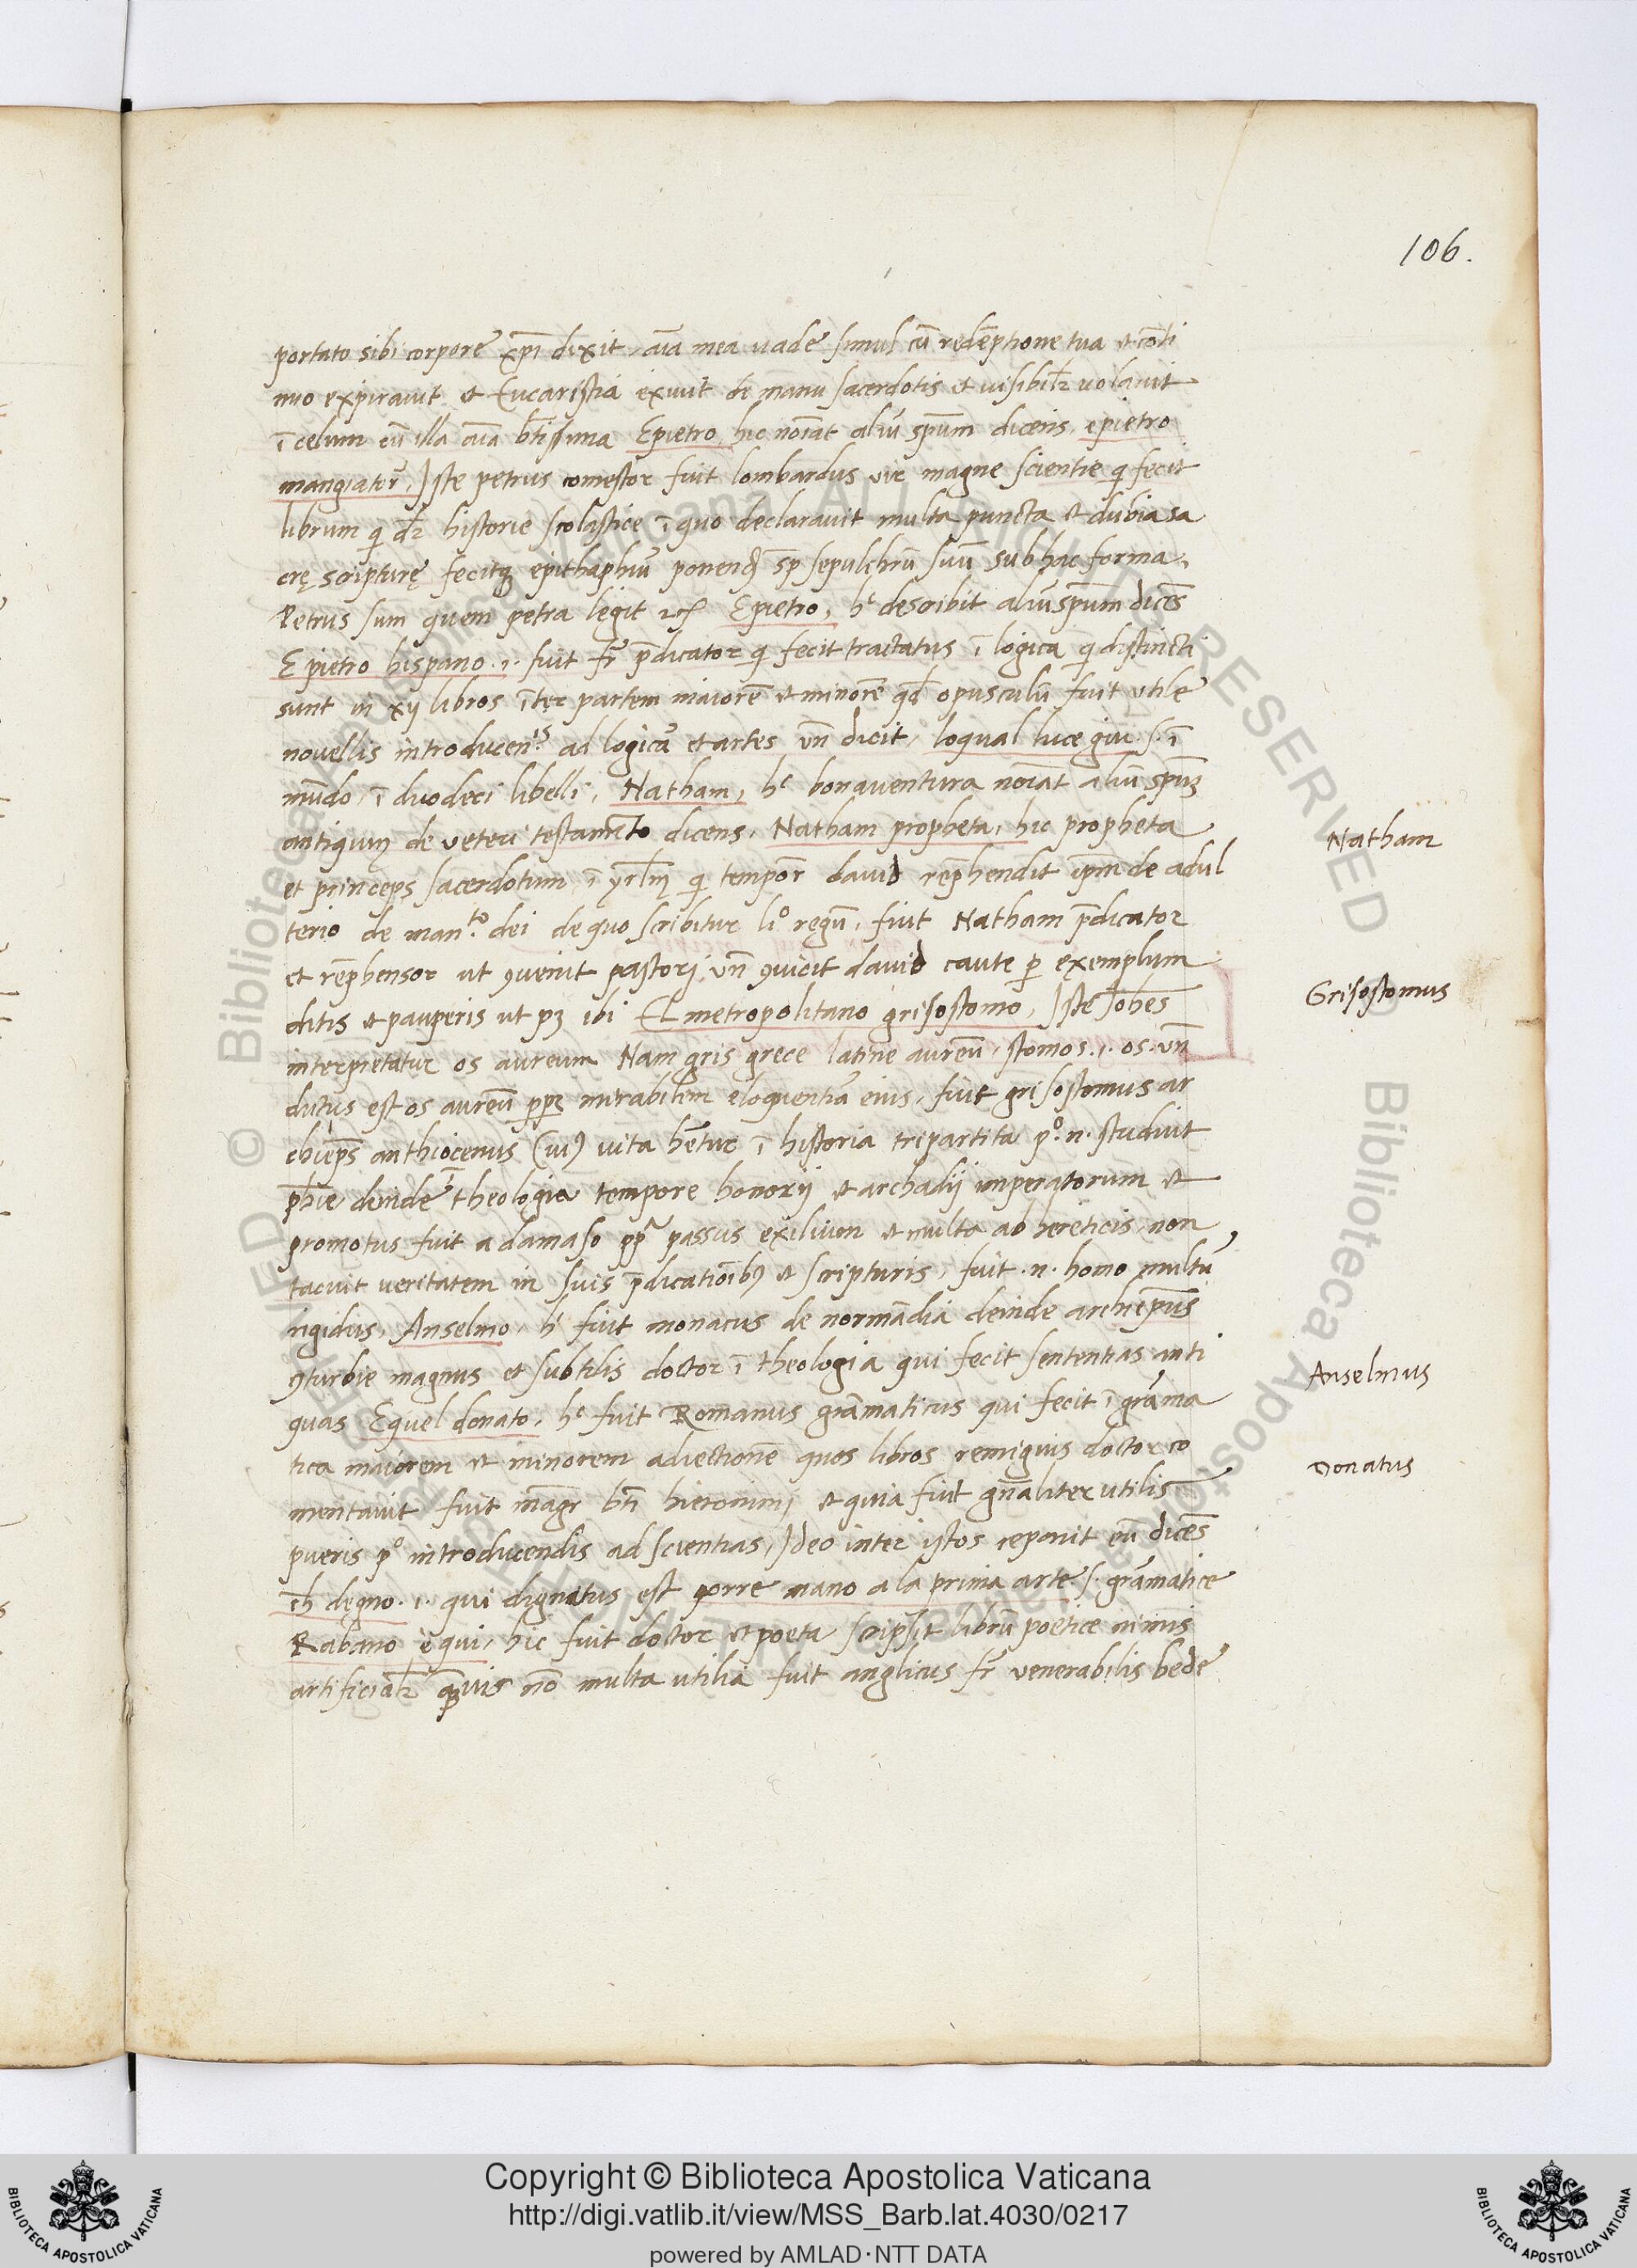 106.
portato sibi corpore xp̄i dixit, aīa mea uade simul cū redēptione tua et cōti
nuo expirauit et Eucaristia exiuit de manu sacerdotis et uisibilr̄ uolauit
ī celum cū illa aīa btīssima Epietro, hic noīat aliū spūm dicens, epietro
mangiator, Iste petrus comestor fuit lombardus vir magne scientie qͥ fecit
librum qͥ dr̄ historie scolastice ī quo declarauit multa puncta et dubia sa
crę scripturę fecitqꝫ epithaphiū ponend̄ sp̄ sepulchrū suū sub hac forma,
Petrus sum quem petra legit &c Epietro, hͨ describit aliū spūm dicēs
E pietro hispano .i. fuit fr̄ p̄dicator qͥ fecit tractatus ī logica qͥ distincti
sunt in xij libros īter partem maiorē et minorē qd̄ opusculū fuit utile
nouellis introducen.ͭˢ ad logicā et artes vn̄ dicit, loqual luce giu .s. ī
mūdo, ī duodeci libelli, Natham, hͨ bonauentura noīat aliū spūꝫ
antiquum de veteri testamēto dicens, Natham propheta, hic propheta
et princeps sacerdotum ī yrl̄m qͥ tempor̄ dauid rep̄hendit ip̄m de adul
terio de man.ᵗᵒ dei de quo scribitur liͦ regū, fuit Natham p̄dicator
et rep̄hensor ut ꝯuenit pastori, vn̄ ꝯuicit dauid caute ꝑ exemplum
ditis et pauperis ut pꝫ ibi El metropolitano grisostomo, Iste Iohēs
interpretatur os aureum Nam gris grece latine aureū, stomos .i. os. vn̄
dictus est os aureū ꝓpꝫ mirabilem eloquentiā eius, fuit grisostomus ar
chiep̄s anthiocenus (cui) uita hētur ī historia tripartita pͦ. n. studuit
ph̄ie deinde ī theologia tempore honorij et archadij imperatorum et
promotus fuit a damaso pp̄ passus exilium et multa ab hereticis, non
tacuit veritatem in suis p̄dicatiōibꝫ et scripturis, fuit .n. homo multū
rigidus, Anselmo, hͨ fuit monacus de normādia deinde archiep̄us
ꝯturbie magnus et subtilis doctor ī theologia qui fecit sententias anti
quas Equel donato, hͨ fuit Romanus grāmaticus qui fecit ī grāma
tica maiorem et minorem adiectionē quos libros remigius doctor co
mentauit fuit māgr btī hieronimi et quia fuit gn̄aliter utilis
pueris pͦ introducendis ad scientias, Ideo inter istos reponit eū dicēs
ch̄ degno .i. qui dignatus est porre mano a la prima arte .s. grāmatice
Rabano è qui, hic fuit doctor et poeta scripsit librū poetice nimis
artificialr̄ quāuis nō multa utilia fuit anglicus fr̄ venerabilis bede
Natham
Grisostomus
Anselmus
Donatus
Copyright © Biblioteca Apostolica Vaticana
http://digi.vatlib.it/view/MSS_Barb.lat.4030/0217
powered by AMLAD·NTT DATA
BIBLIOTECA APOSTOLICA VATICANA
BIBLIOTECA APOSTOLICA VATICANA